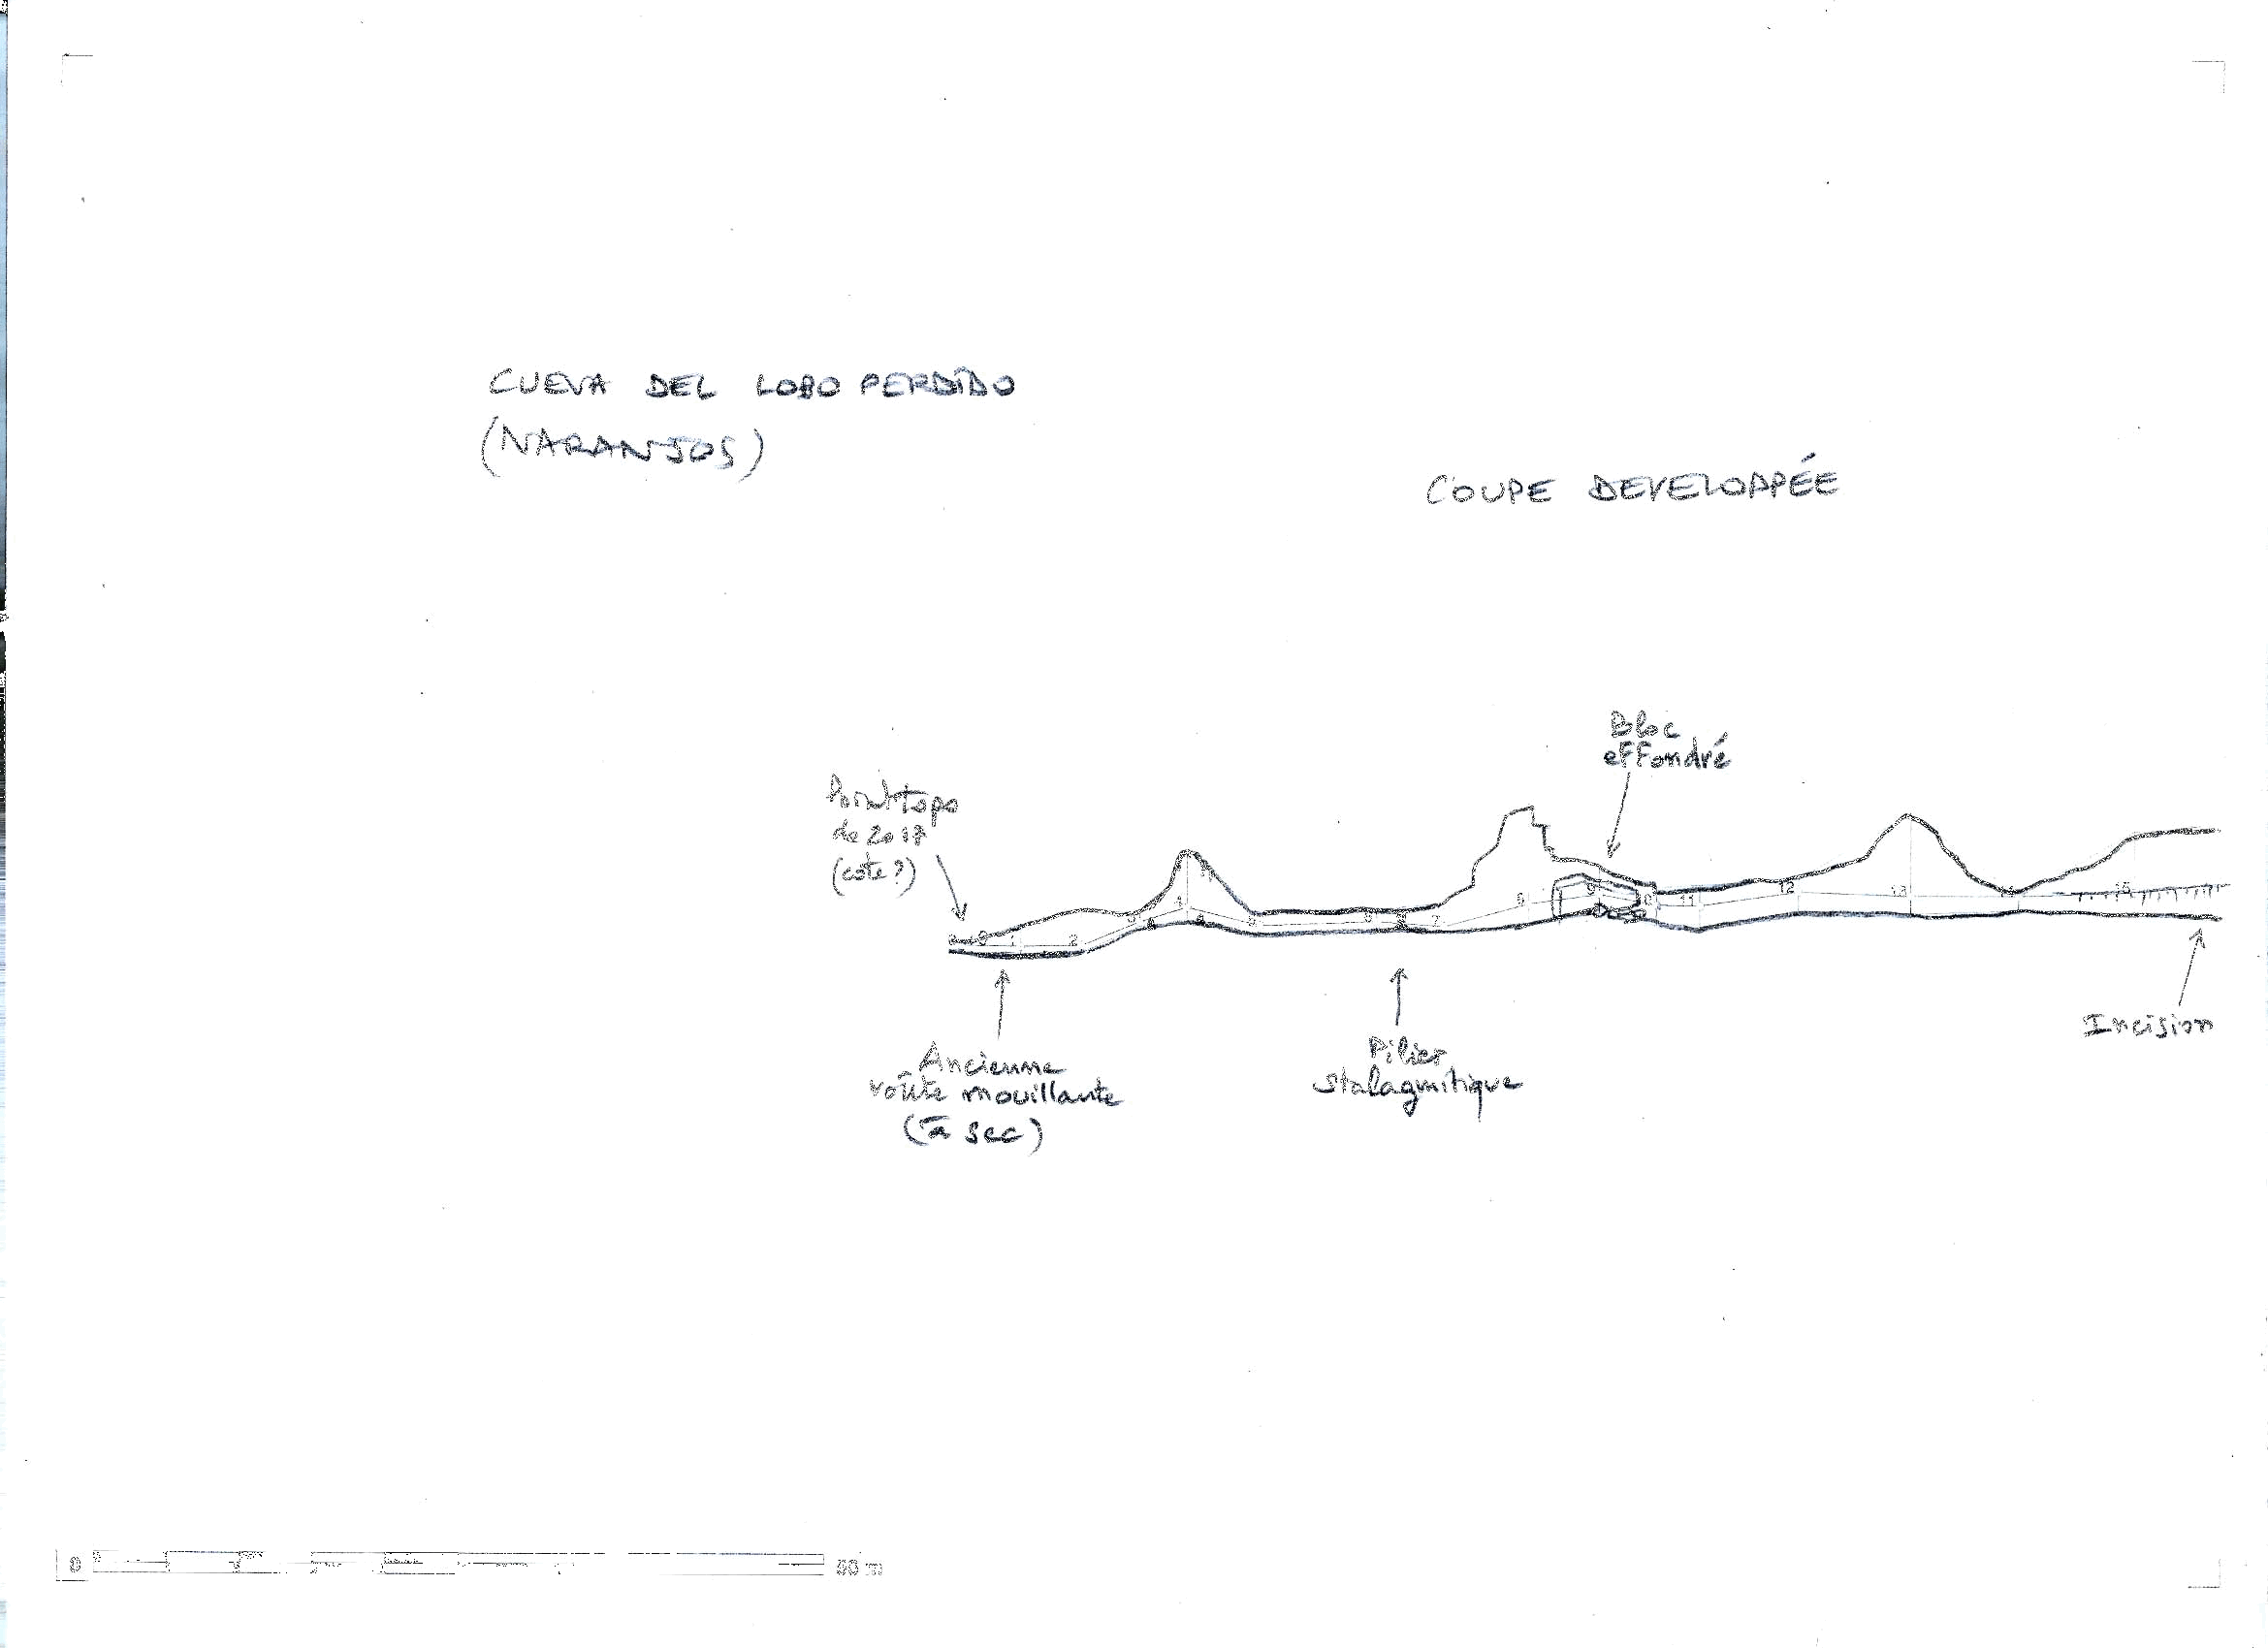 CUEVA DEL LOBO PERDIDO
(NARANJOS)
COUPE DEVELOPPÉE
Bloc
effondré
Point topo
de 2017
(cote?)
1
2
3
4
5
7
8
9
10
11
12
13
14
15
Incision
Ancienne
voûte mouillante
(à sec)
Pilier
stalagmitique
0
50 m